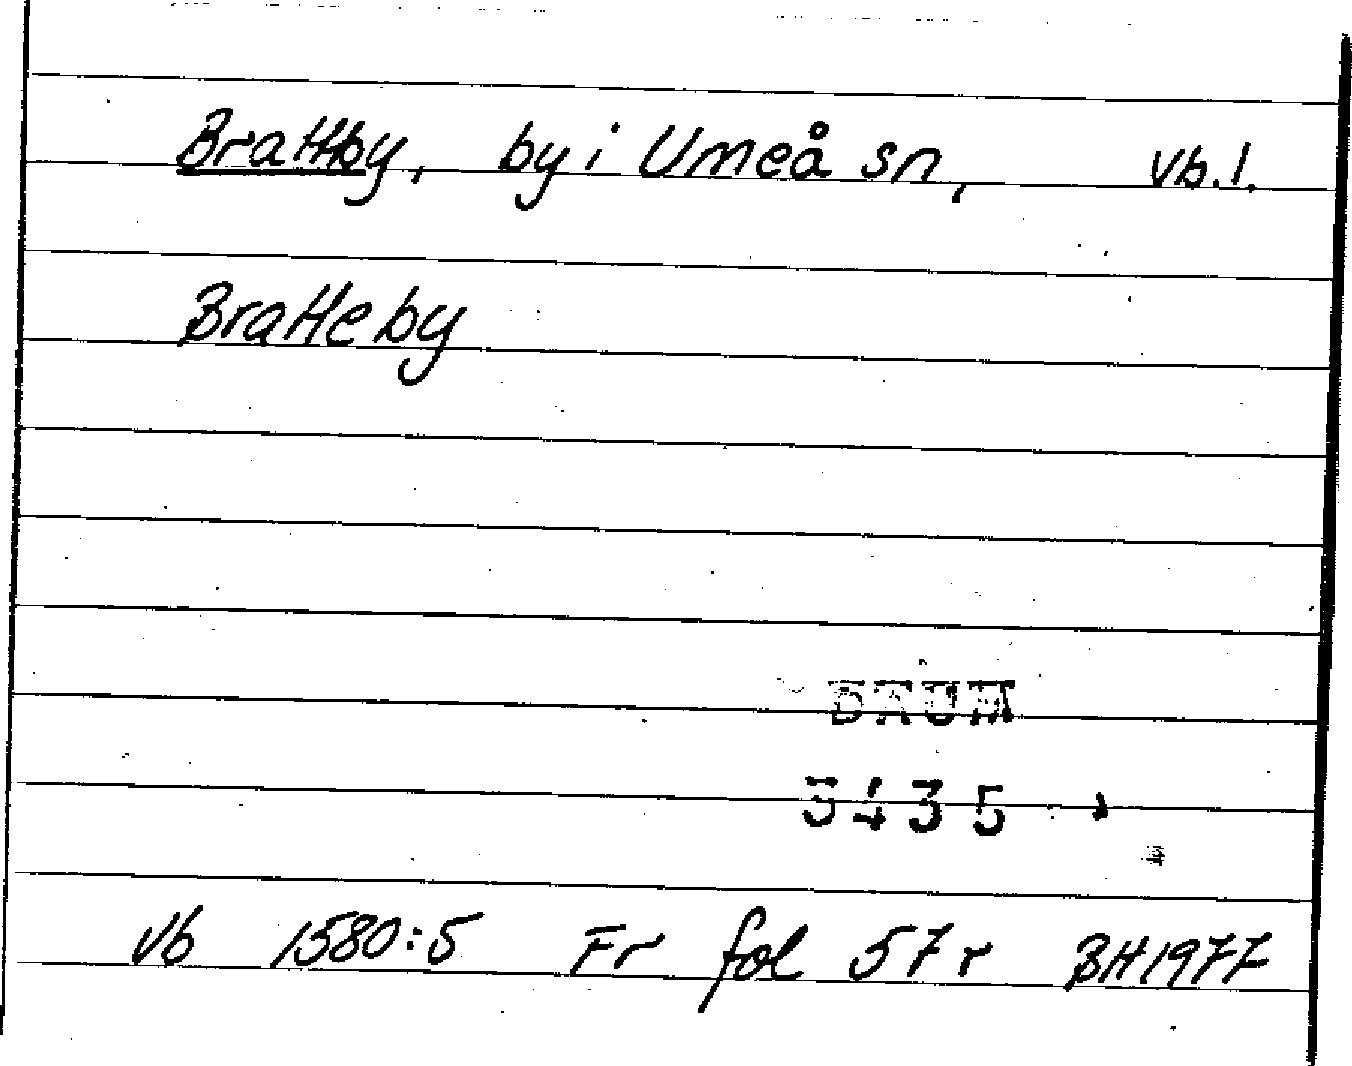 Brattby, by i Umeå sn, vb.l.
Bratteby
DAUM
3435
vb 1580:5 Fr fol 57 r BH1977